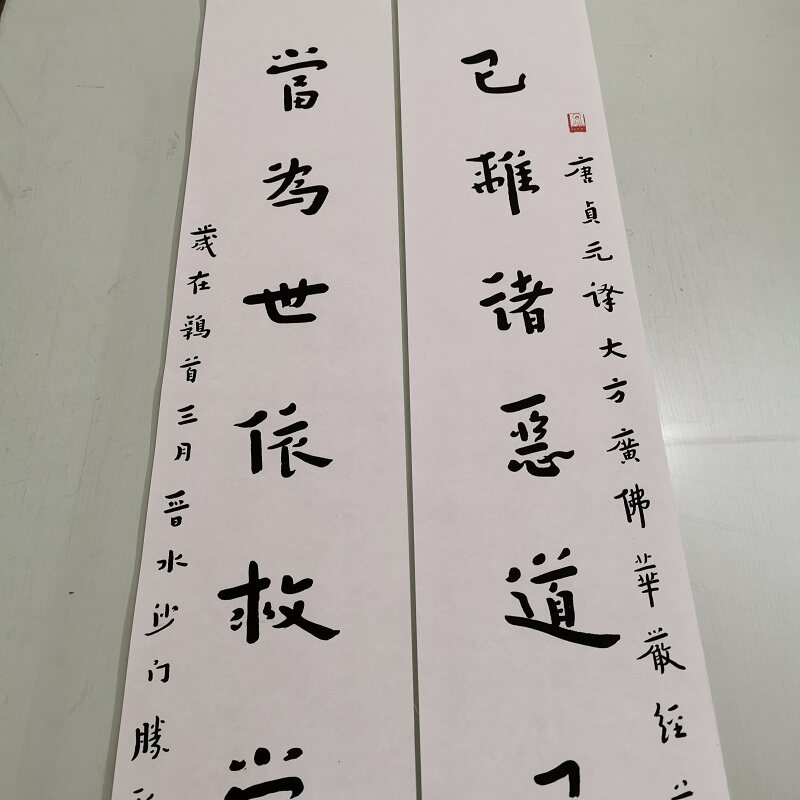 唐貞元译大方廣佛華嚴經
已離诸惡道
當為世依救
歲在鶉首三月晋水沙门勝